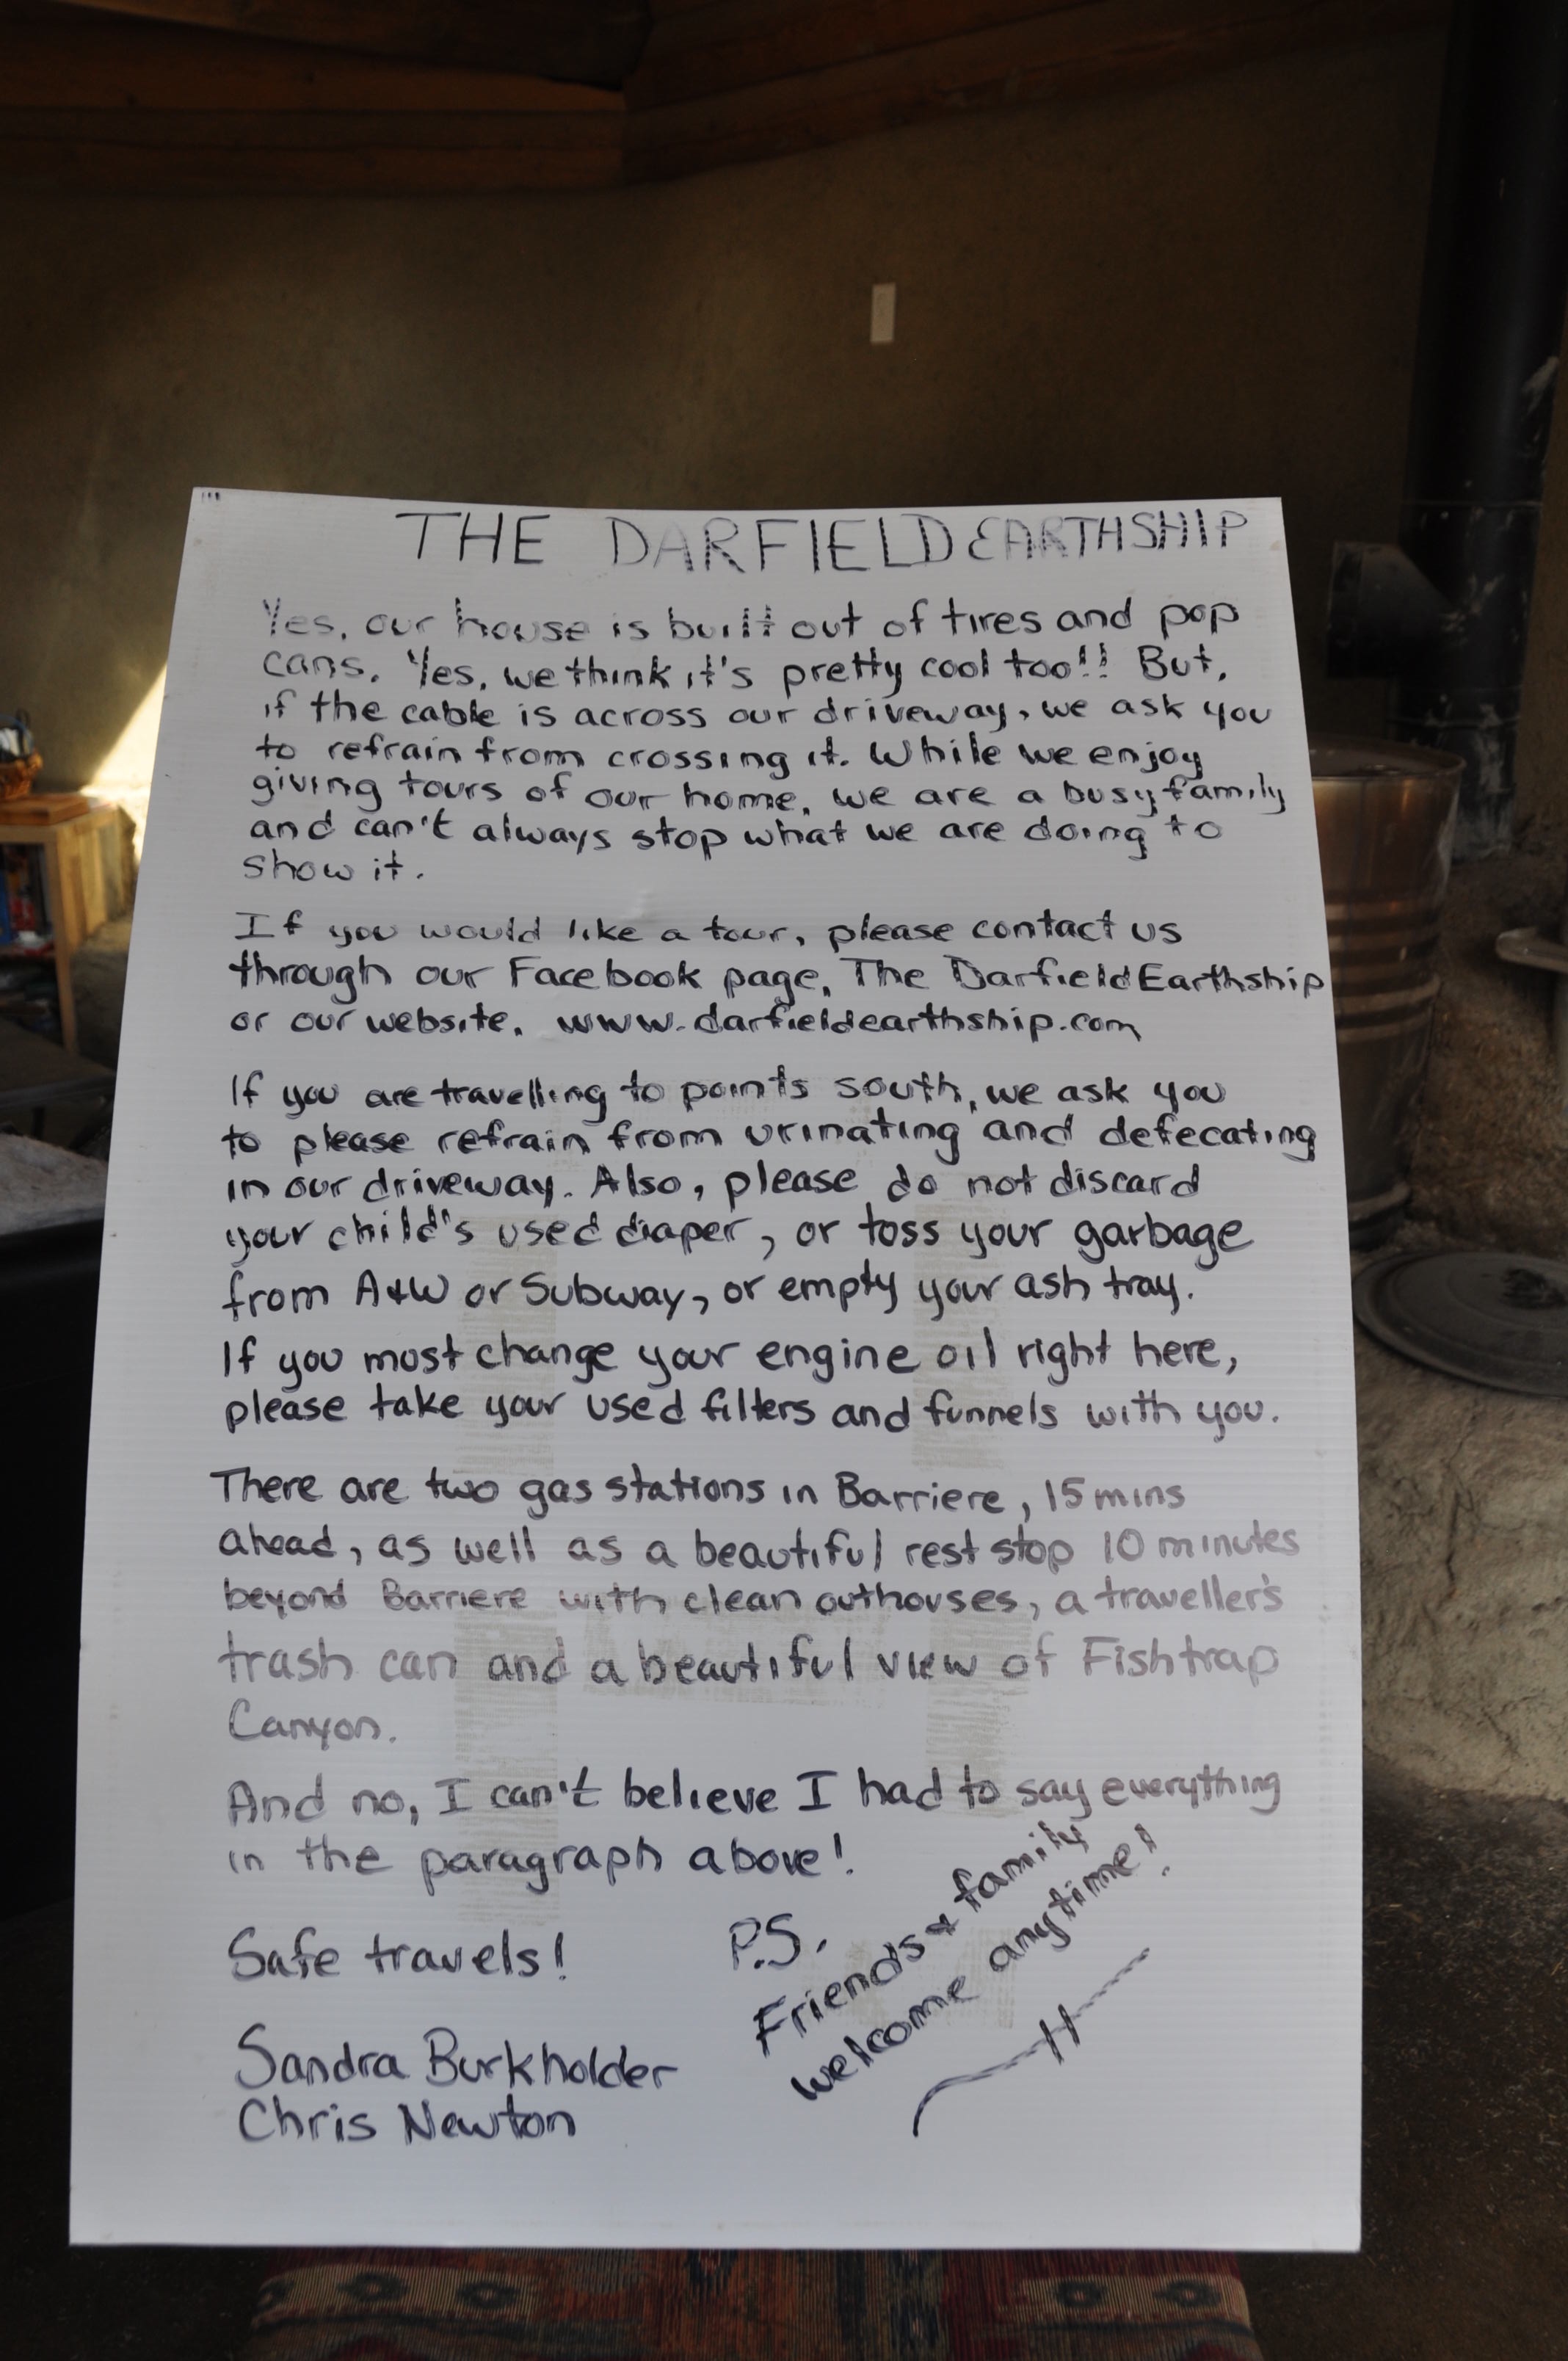 THE DARFIELD EARTHSHIP
Yes, our house is built out of tires and pop
cans. Yes, we think it's pretty cool too!! But,
if the cable is across our driveway, we ask you
to refrain from crossing it. While we enjoy
giving tours of our home, we are a busy family
and can't always stop what we are doing to
show it.
If you would like a tour, please contact us
through our Facebook page, The Darfield Earthship
or our website, www.darfieldearthship.com
If you are travelling to points south, we ask you
to please refrain from urinating and defecating
in our driveway. Also, please do not discard
your child's used diaper, or toss your garbage
from A&W or Subway, or empty your ash tray.
If you must change your engine oil right here,
please take your used filters and funnels with you.
There are two gas stations in Barriere, 15 mins
ahead, as well as a beautiful rest stop 10 minutes
beyond Barriere with clean outhouses, a traveller's
trash can and a beautiful view of Fishtrap
Canyon.
And no, I can't believe I had to say everything
in the paragraph above!
Safe travels!
Sandra Burkholder
Chris Newton
P.S.
Friends & family
welcome anytime!